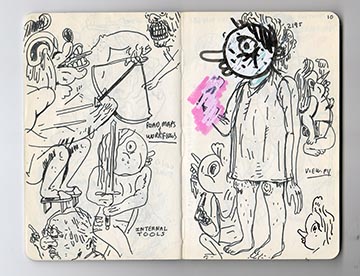 ROAD MAPS
WORKFLOWS
INTERNAL
TOOLS
2195
10